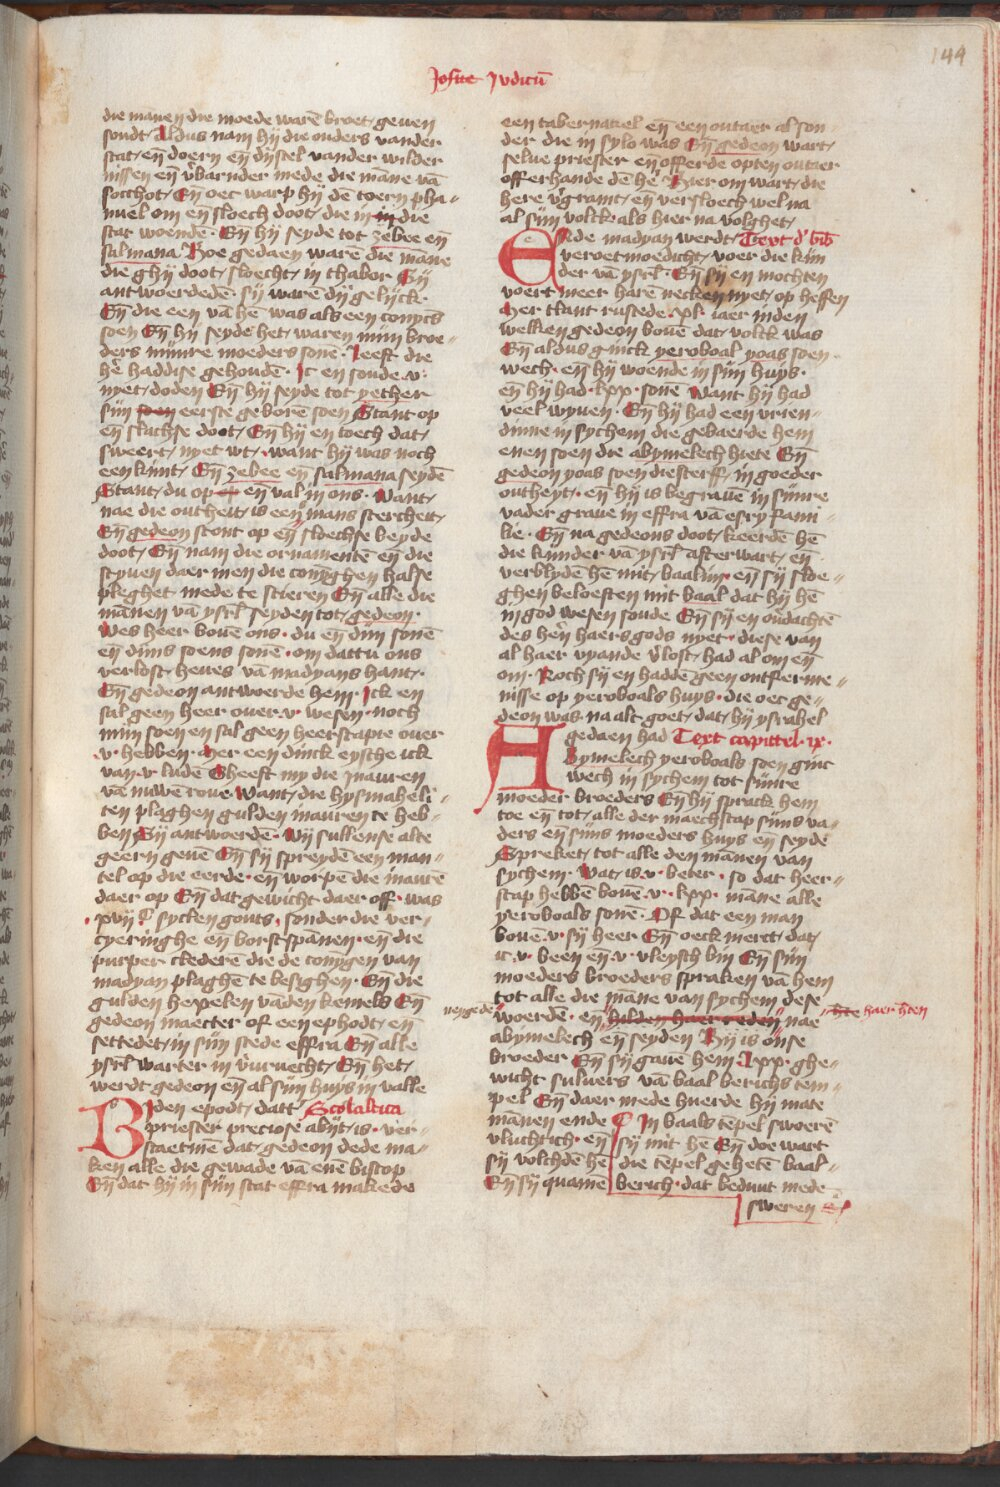 144
Josue Judicū
die mānen die moede warē broet, geuen
soudt, Aldus nam hij die ouders vander
stat, eñ doern eñ dijstel vander wilder
nissen eñ v̄barnder mede die māne vā
socchot, Eñ oec warp hij dē toern pha-
nuel om eñ sloech doot, die in in die
stat woendē. Eñ hij seyde tot zebee eñ
salmana Hoe gedaen warē die māne
die ghij doot, sloecht, in thabor Sij
antwoerdedē. sij warē dij gelijck.
Eñ die een vā hē was als een conycs
soen Eñ hij seyde het, waren mijn broe-
ders mijnre moeders sonē. Leeft die
hē haddise gehoudē. Ic en soude .v.
nyet, doden Eñ hij seyde tot yether
sijn soen eerste geborē soen Stant op
eñ slachse doot, Eñ hij en toech dat,
sweert, nyet wt, want hij was noch
een kijnt, Eñ zebee eñ salmana seydē
Stant, du op op eñ val in ons. Want,
nae die outheit, is een mans stercheit,
Eñ gedeon stont op eñ sloechse beyde
doot, Eñ nam die ornamentē eñ die
styuen daer men die conyghen halse
pleghet mede te scieren Eñ alle die
mānen vā ysrl̄ seyden tot, gedeon.
Wes heer bouē ons. du eñ dijn sonē
eñ dijns soens sonē. om dattu ons
verlost, heues vā madyans hant,
Eñ gedeon antwoerde hem. Ick en
sal geen heer ouer .v. wesen. noch
mijn soen en sal geen heerscapie ouer
.v. hebben. Mer een dinck eysche ick
van .v. ludē Gheeft my die mauren
vā nuwē roue. Want, die hysmaheli-
ten plaghen gulden mauren te heb-
ben Sij antwoerdē. Wij sullense alte
geern geuē Eñ sij spreydē een man-
tel op die eerde. eñ worpē die maurē
daer op Eñ dat gewicht daer off. was
.xvij C sycken gouts, sonder die ver-
cyeringhe eñ borstspānen. eñ die
purper clederē die de conygen van
madyan plaghē te besighen. Eñ die
gulden hexelen vādē kemels Eñ
gedeon maecter of een ephodt, eñ
settedet, in sijn stede effra Eñ alle
ysrl̄ warter in v̄urnecht, Eñ het,
werdt gedeon eñ al sijn huys in valle
Biden epodt, datt Scolastica
priester preciose abijt, is. ver-
staetmē dat, gedeon dede ma-
ken alle die gewade vā enē biscop
Eñ dat hij in sijn stat effra makede
een tabernakel eñ een outaer al son-
der die in sylo was Eñ gedeon wart,
selue priester eñ offerde opten outaer
offerhande dē hē Hier om wart, die
here v̄gramt, eñ versloech wel na
al sijn volck, als hier na volghet,
Ende madyan werdt, Text d' bib
veroetmoedicht, voer die kijn
der vā ysrl̄. Eñ sij en mochten
voert meer harē necken nyet, op heffen
Mer tlant rustede .xl. iaer inden
welken gedeon bouē dat, volck was
Eñ aldus ginck yeroboal yoas soen
wech. eñ hij woende in sijn huys.
eñ hij had .lxx. sonē Want hij had
veel wyuen. Eñ hij had een vrien-
dinne in sychem die gebaerde hem
enen soen die abymelech hiete Eñ
gedeon yoas soen die sterff, in goeder
outheyt, eñ hij is begrauē in sijnre
vader graue in effra vā esry fami-
lie. Eñ na gedeons doot, keerdē hē
die kijnder vā ysrl̄ after wart, eñ
verblydē hē mit, baalim. eñ sij sloe-
ghen beloesten mit baal dat hij hē
in god wesen soude Eñ sij en oūdachtē
des hern haers gods nyet, diese van
al haer vyande v̄lost, had al om eñ
om. Noch sij en haddē geen ontferme-
nisse op yeroboals huys. die oec ge-
deon was. na alt goet, dat, hij ysrahel
gedaen had Text capittel .ix.
Abymelech yeroboals soen ginc
wech in sychem tot sijnre
moeder broeders Eñ hij sprack hem
toe eñ tot, alle der maechscap sijns va-
ders eñ sijns moeders huys eñ seyde
Spreket, tot alle den mānen van
sychem. Wat, is .v. beter. so dat heer-
scap hebbē bouē .v. .lxx. māne alle
yeroboals sonē. Of dat een man
bouē .v. sij heer Eñ oeck merct, dat,
ic .v. been eñ .v. vleysch bin Eñ sijn
moeders broeders spraken vā hem
tot alle die māne van sychem dese
woerdē. eñ hilden haer reden nae
neygedē
haer h̄ten
abymelech eñ seyden Hij is onse
broeder Eñ sij gauē hem .lxx. ghe-
wicht siluers vā baal berichs tem-
pel Eñ daer mede huerde hij mate
mānen ende
vluchtich. eñ
sij volchdē hē
Eñ sij quamē
C In baals tēpel swoerē
sij mit hē Eñ doe wart
die tēpel gehetē baal-
berich. dat beduut mede
sweren